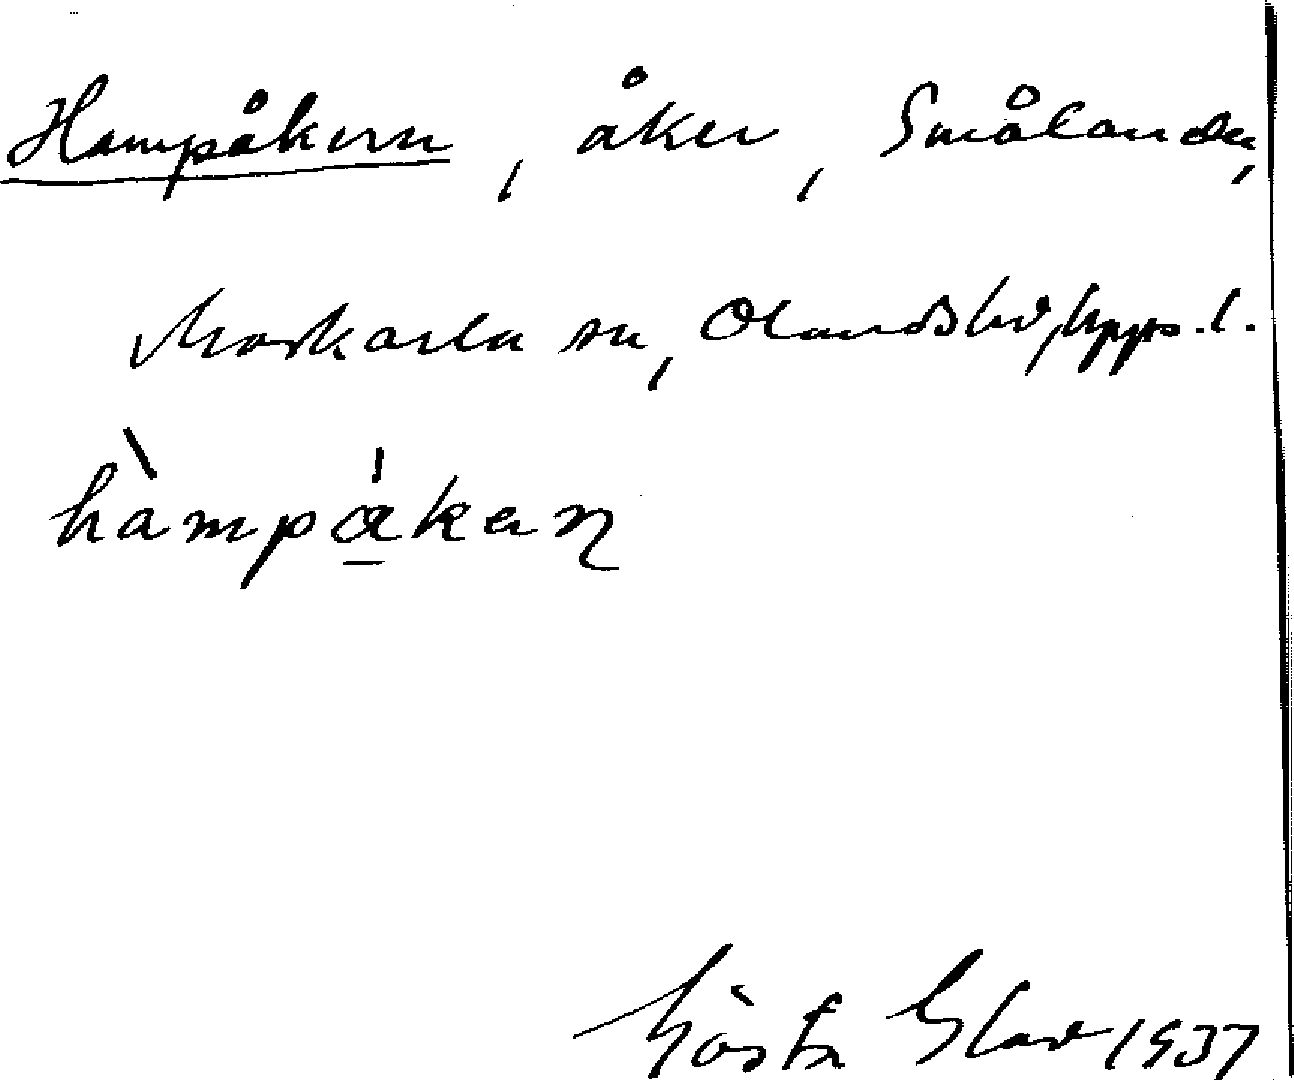 Hampåkern, åker, Smålanda,
Morkarla sn, Olands hd, Upps. l.
hàmpá̱kaɳ
Gösta Glad 1937